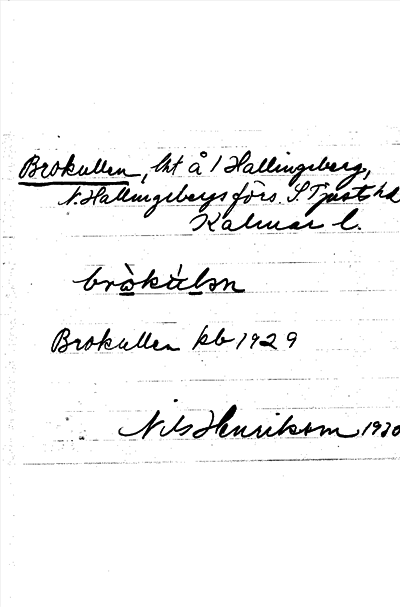 Brokullen, lht å 1 Hallingeberg,
N. Hallingebergs förs. S. Tjusts hd
Kalmar l.
bròkúlən
Brokullen kb 1929
Nils Henrikson 1930